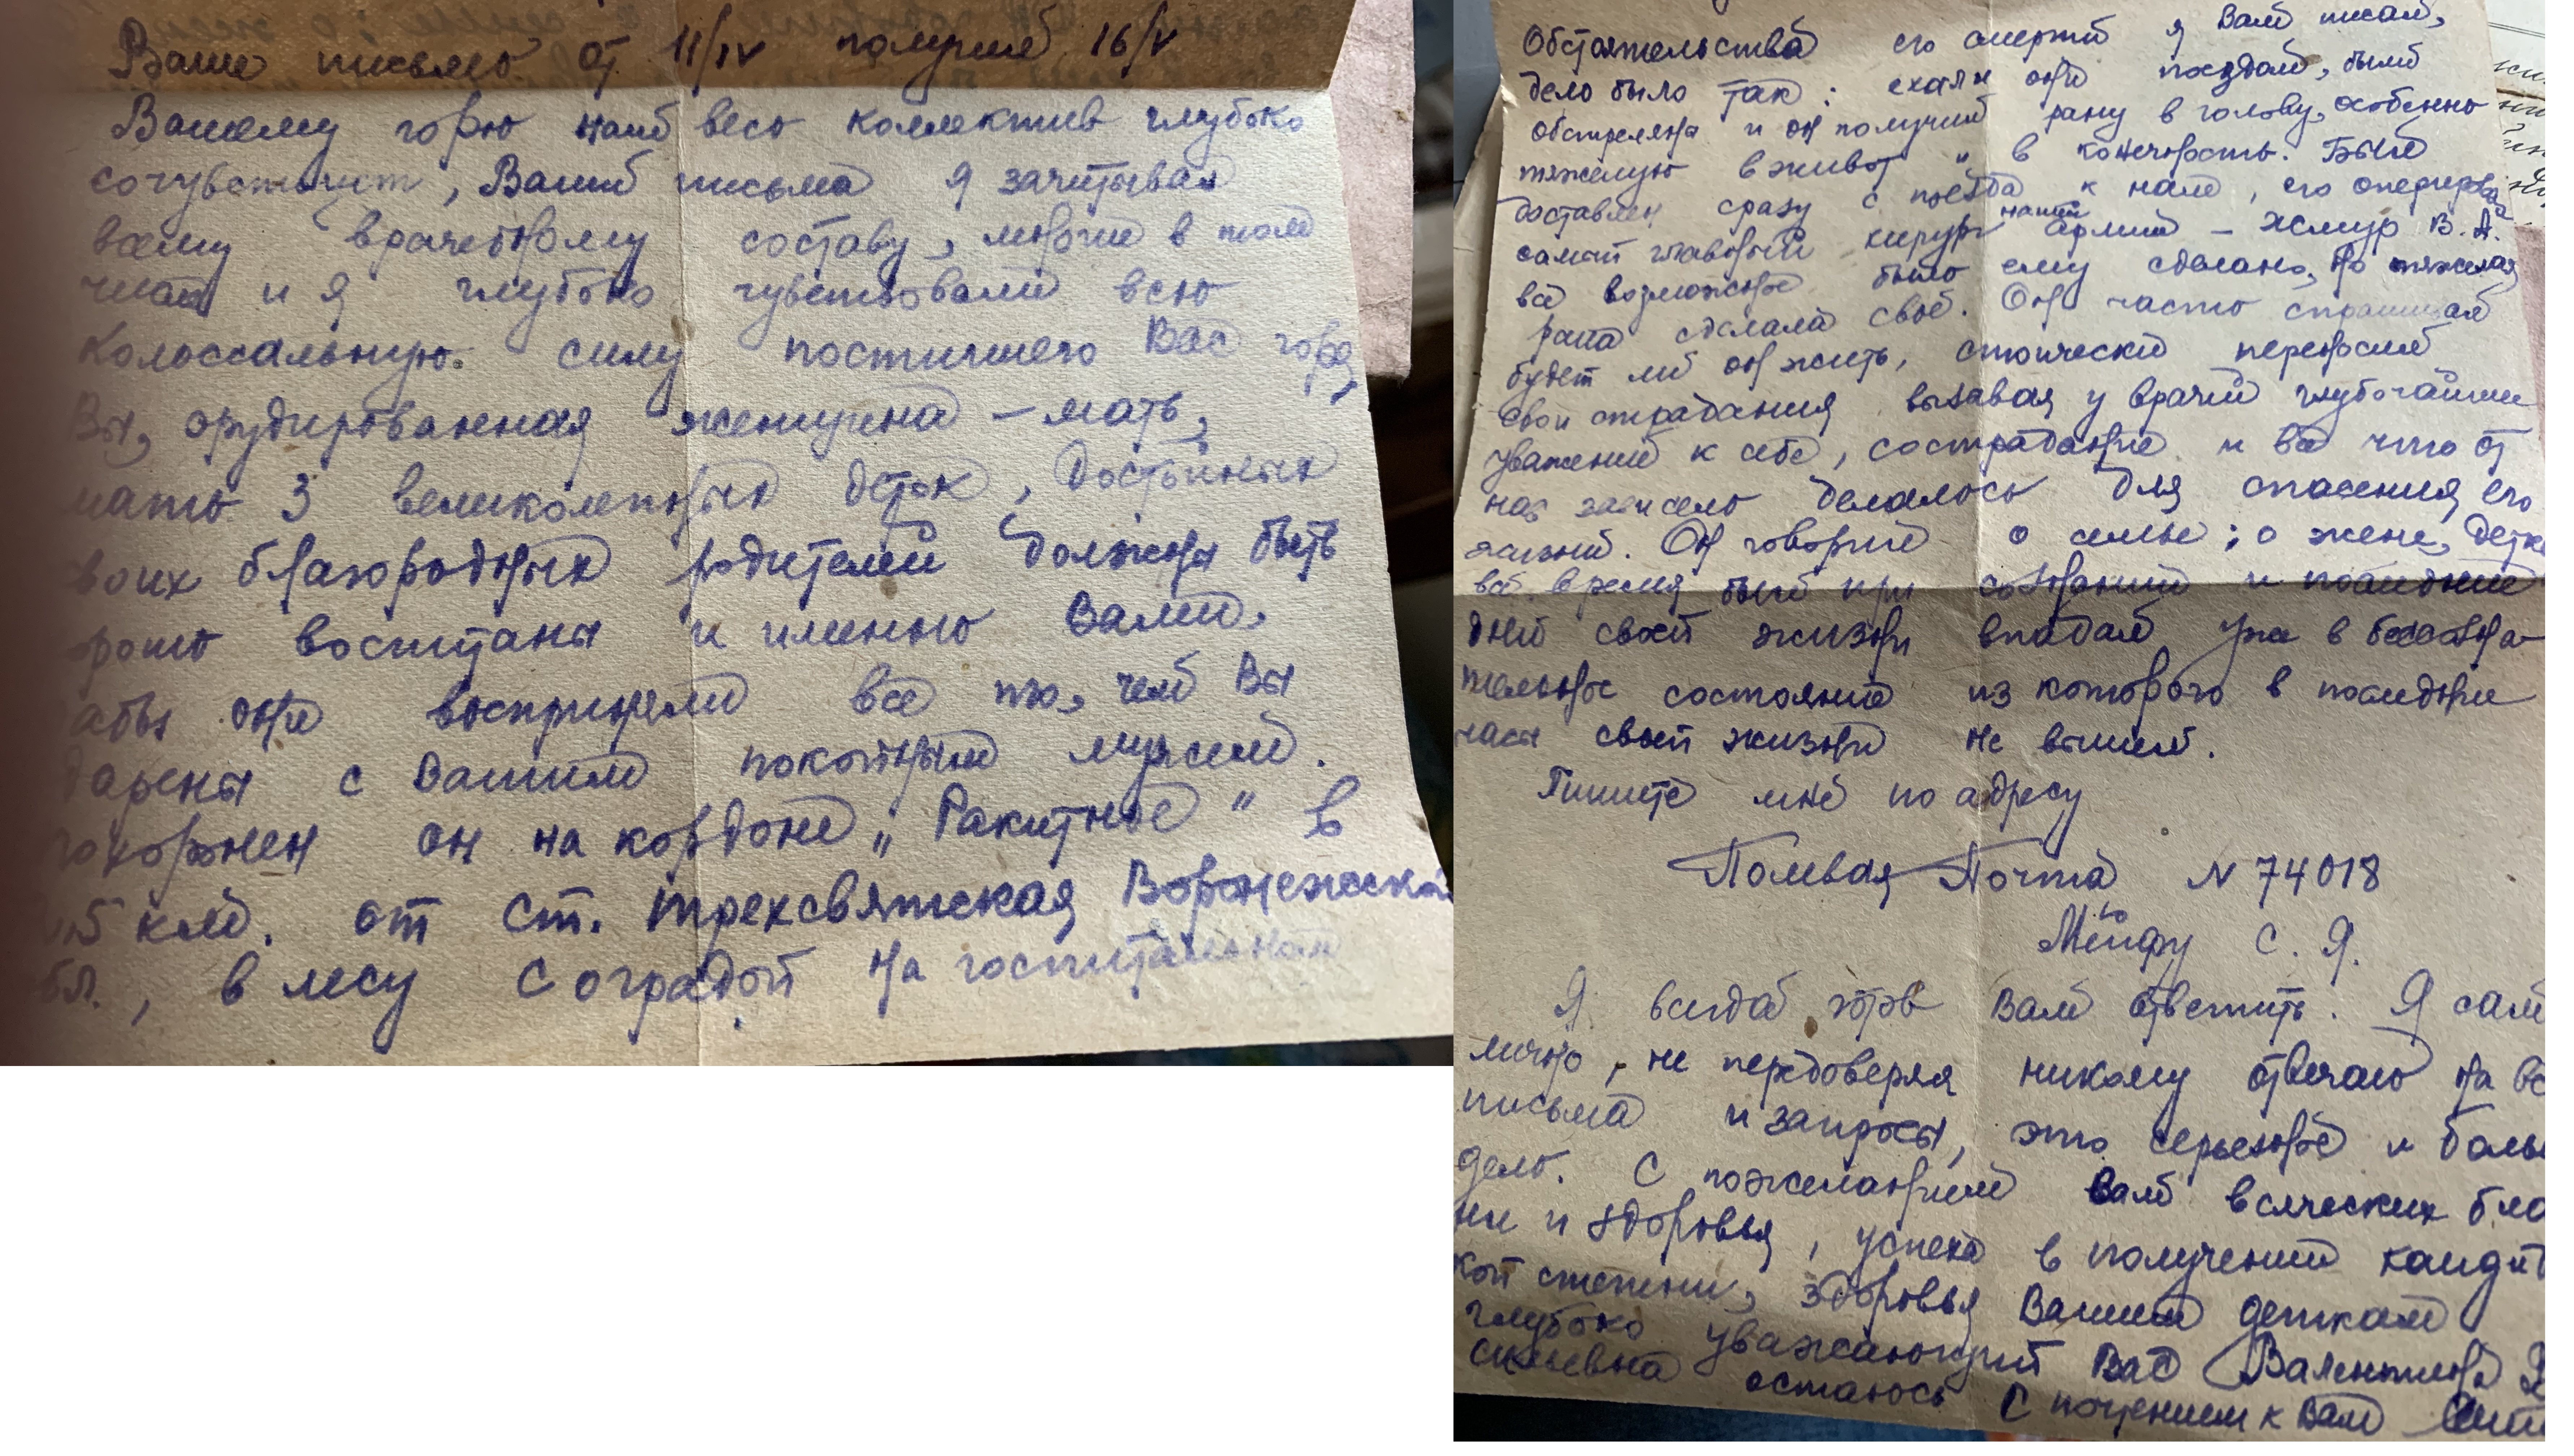 Ваше письмо от 11/IV получил 16/V
Вашему горю наш весь коллектив глубоко
сочувствует, Ваши письма я зачитывал
всему врачебному составу, многие в том
числе и я глубоко чувствовали всю
колоссальную силу постигшего Вас горя,
Вы, эрудированная женщина – мать,
мать 3 великолепных деток, достойных
воих благородных родителей должны быть
рошо воспитаны и именно Вами,
абы они восприняли все то, чем Вы
дарены с Вашим покойным мужем.
похоронен он на кордоне „Ракитное" в
км. от ст. Трехсвятская Воронежской
бл., в лесу с оградой на госпитальном
Обстоятельства его смерти я Вам писал,
дело было так: ехали они поездом, были
обстреляны и он получил рану в голову, особенно
тяжелую в живот „ в конечность. Был
доставлен сразу с поезда к нам, его оперировал
самый главный хирург нашей армии – Жмур В. А.
всё возможное было ему сделано, но тяжелая
рана сделала своё. Он часто спрашивал
будет ли он жить, стоически переносил
свои страдания вызывая у врачей глубочайшее
уважение к себе, сострадание и всё что от
нас зависело делалось для спасения его
жизни. Он говорил о семье; о жене, детк
всё время был при сознании и последние
дни своей жизни впадал уже в бессозна-
тельное состояние из которого в последние
часы своей жизни не вышел.
Пишите мне по адресу
Полевая Почта N 74018
С. Я.
Я всегда готов Вам ответить. Я сам
лично, не передоверяя никому отвечаю на вс
письма и запросы, это серьезное и боль
дело. С пожеланием Вам всяческих бла
ни и здоровья, успеха в получении кандит
кой степени, здоровья Вашим деткам
глубоко уважающий Вас Валентина
остаюсь С почтением к Вам